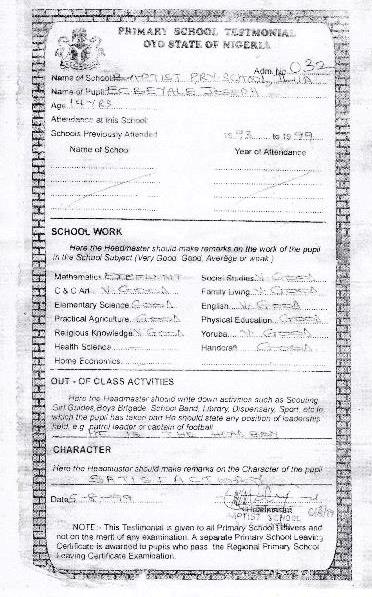 PRIMARY SCHOOL TESTIMONIAL
OYO STATE OF NIGERIA
Adm. No 032
Name of School BAPTIST PRY SCHOOL,
Name of Pupil
Age 14 YRS
Attendance at this School
Schools Previously Attended 1993 to 1999
Name of School Year of Attendance
SCHOOL WORK
Here the Headmaster should make remarks on the work of the pupil
in the School Subject (Very Good, Good, Average or weak)
Mathematics EXCELLENT Social Studies V. GOOD
C & C Art V. GOOD Family Living V. GOOD
Elementary Science GOOD English V. GOOD
Practical Agriculture GOOD Physical Education GOOD
Religious Knowledge V. GOOD Yoruba V. GOOD
Health Science Handcraft GOOD
Home Economics
OUT - OF CLASS ACTVITIES
Here the Headmaster should write down activities such as Scouting
Girl Guides, Boys Brigade, School Band, Library, Dispensary, Sport, etc in
which the pupil has taken part He should state any position of leadership
held, e.g. patrol leader or captain of football
HE IS THE
CHARACTER
Here the Headmaster should make remarks on the Character of the pupil
SATISFACTORY
Date 5-8-99
Headmaster
BAPTIST SCHOOL
NOTE :- This Testimonial is given to all Primary School leavers and
not on the merit of any examination. A separate Primary School Leaving
Certificate is awarded to pupils who pass the Regional Primary School
Leaving Certificate Examination.